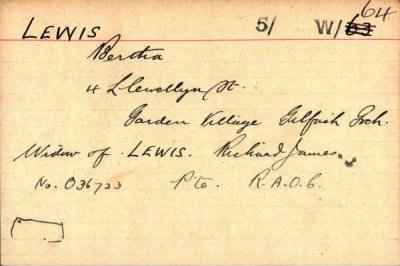 LEWIS 5/ W/63 64
Bertha
4 Llewellyn St.
Garden Village Gilfach Goch.
Widow of LEWIS. Richard James.
No. 036723 Pte. R.A.O.C.